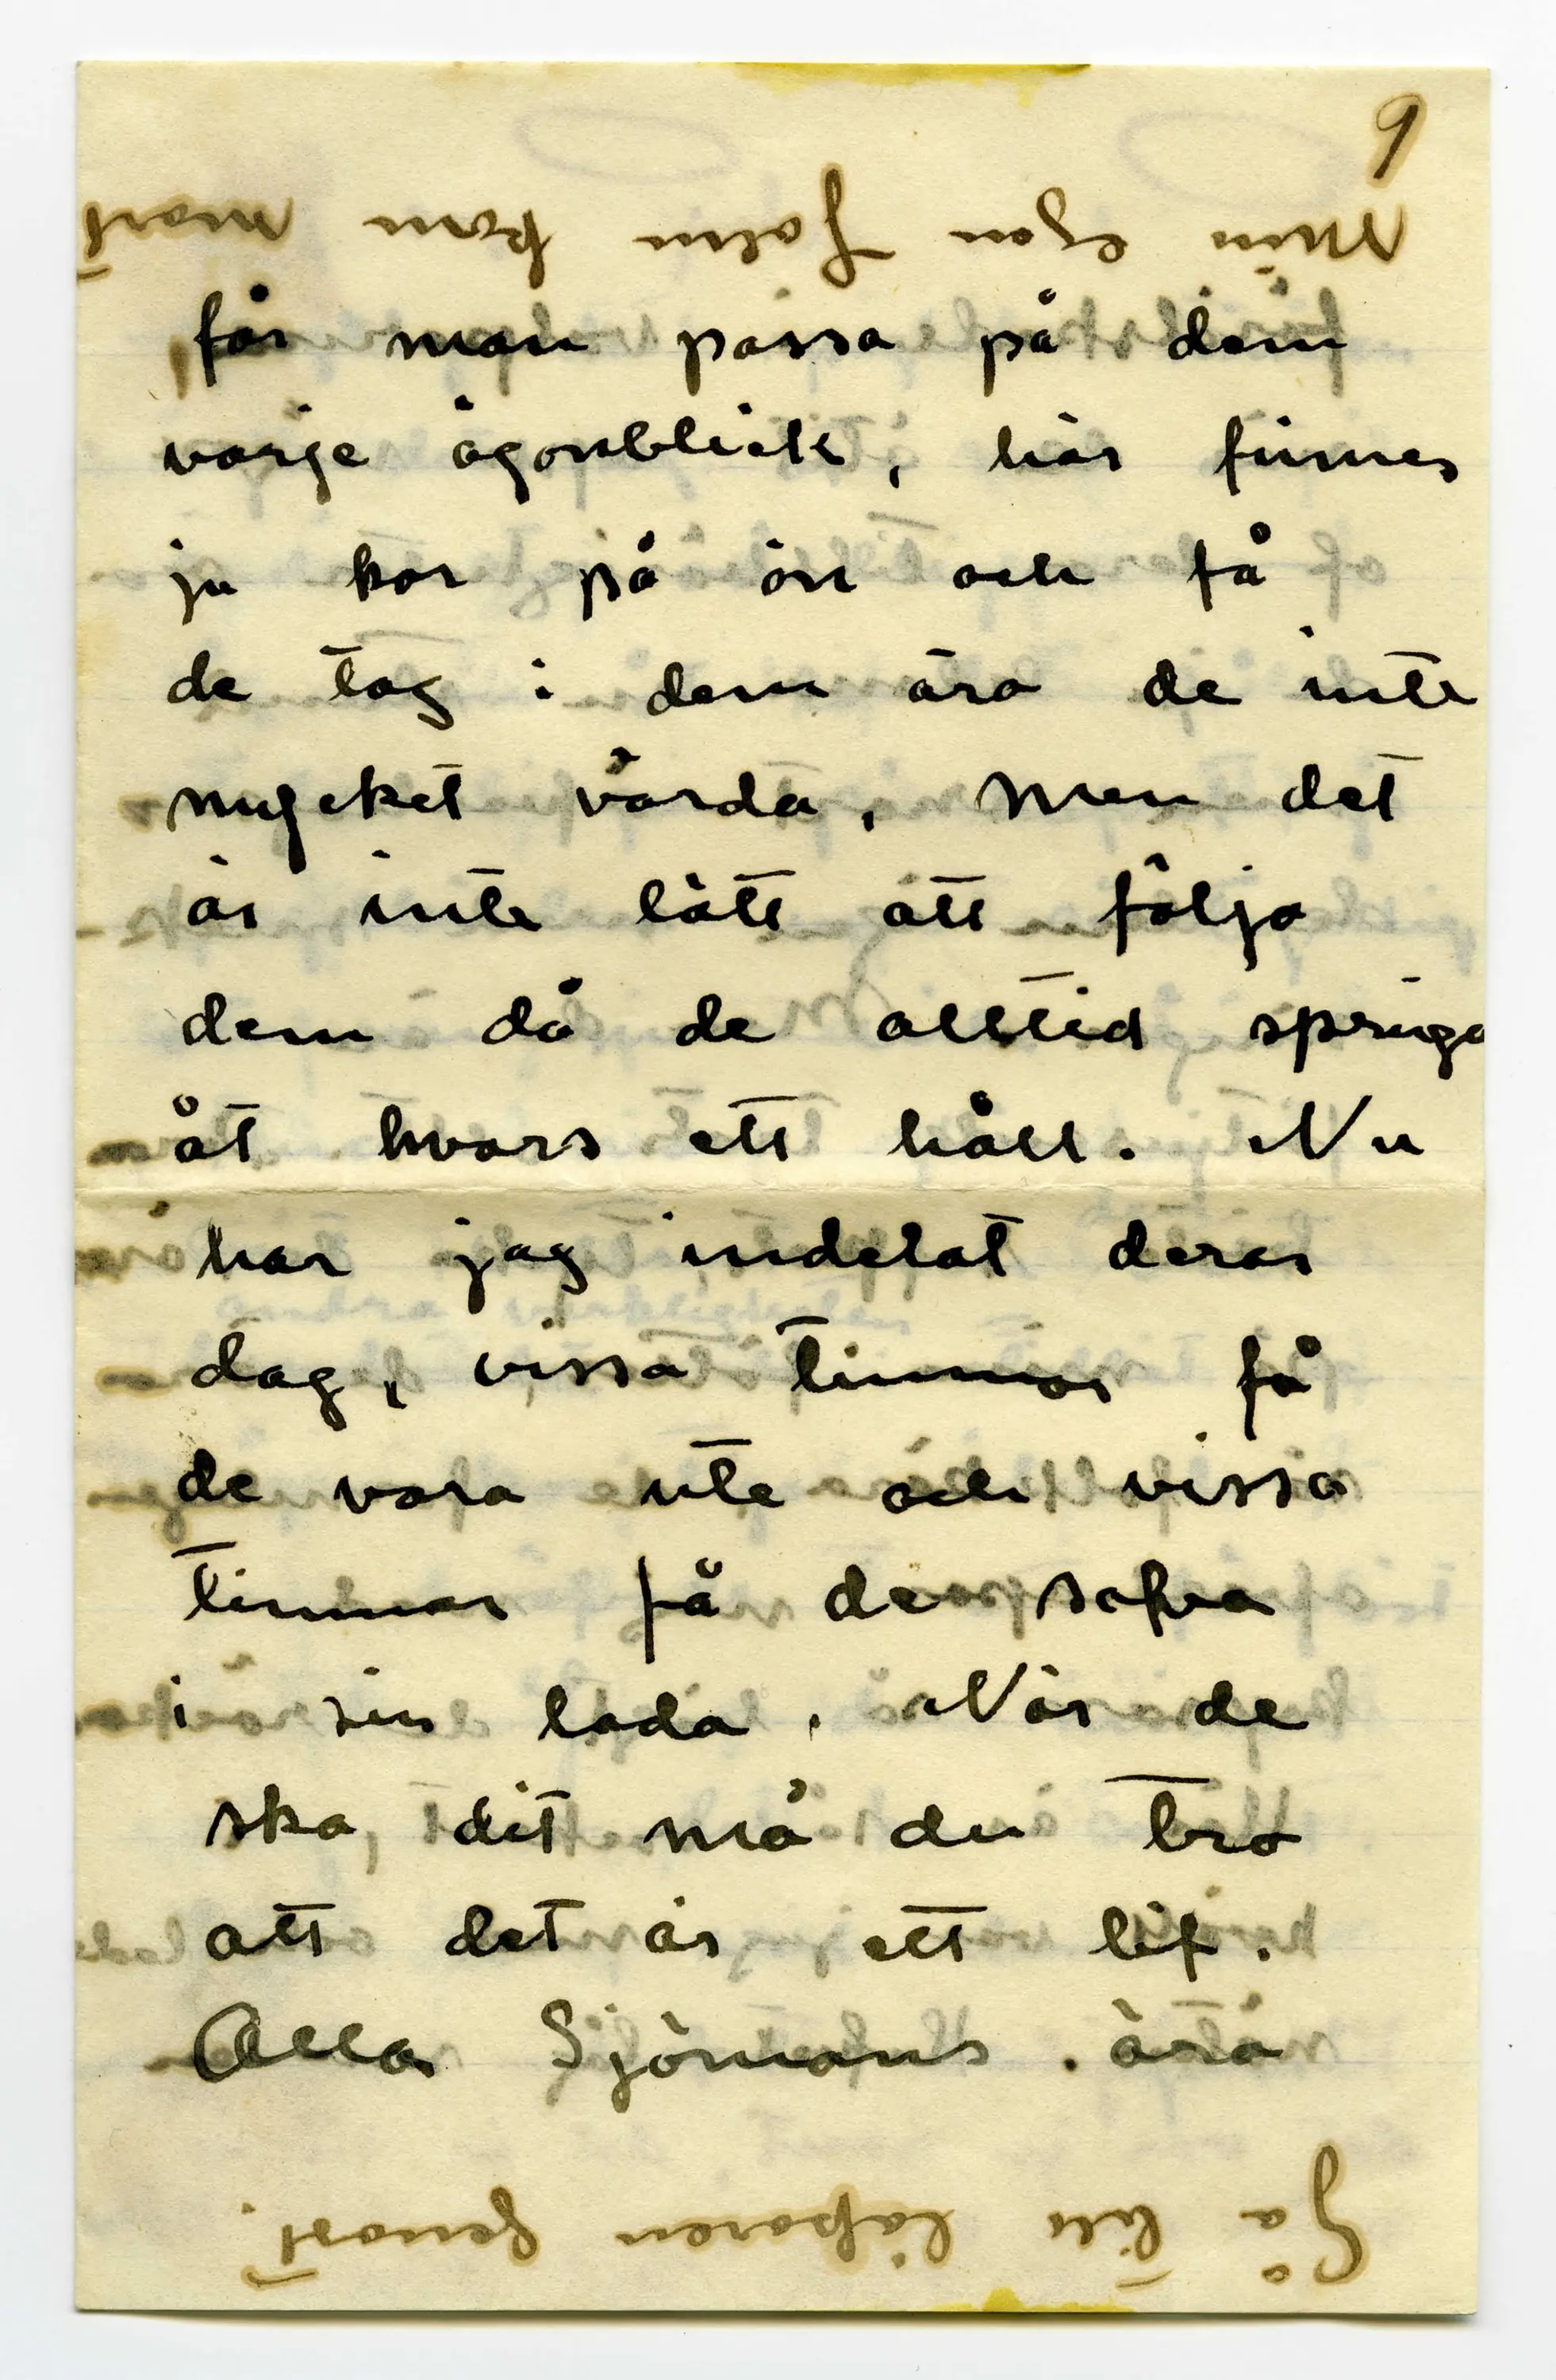 9
Min egen kom snart
får man passa på dem
varje ögonblick, här finnes
ju kor på ön och få
de tag i dem äro de inte
mycket värda, men det
är inte lätt att följa
dem då de alltid springa
åt hvars ett håll. Nu
har jag indelat deras
dag, vissa timmar få
de vara ute och vissa
timmar få de sofva
i sin lada. När de
ska dit må du tro
att det är ett lif.
Alla Sjömans äro
Gå till läkaren genast.